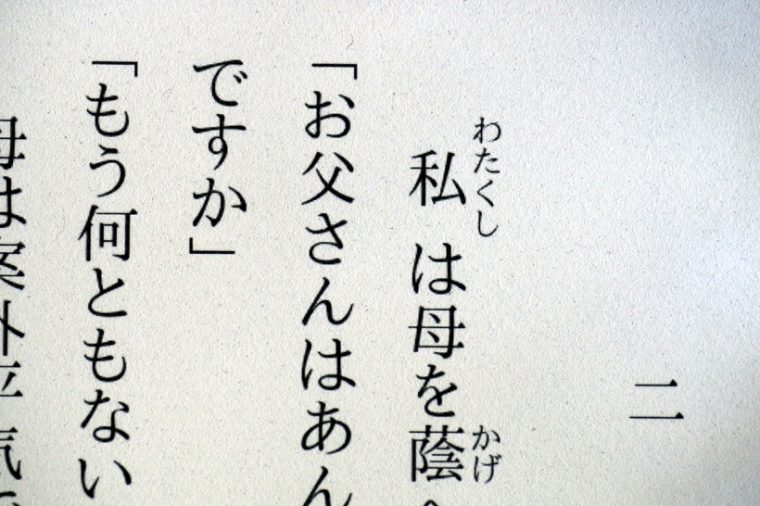 二
私は母を蔭へ
わたくし
かげ
「お父さんはあん
ですか」
「もう何ともない
母は案外平気で